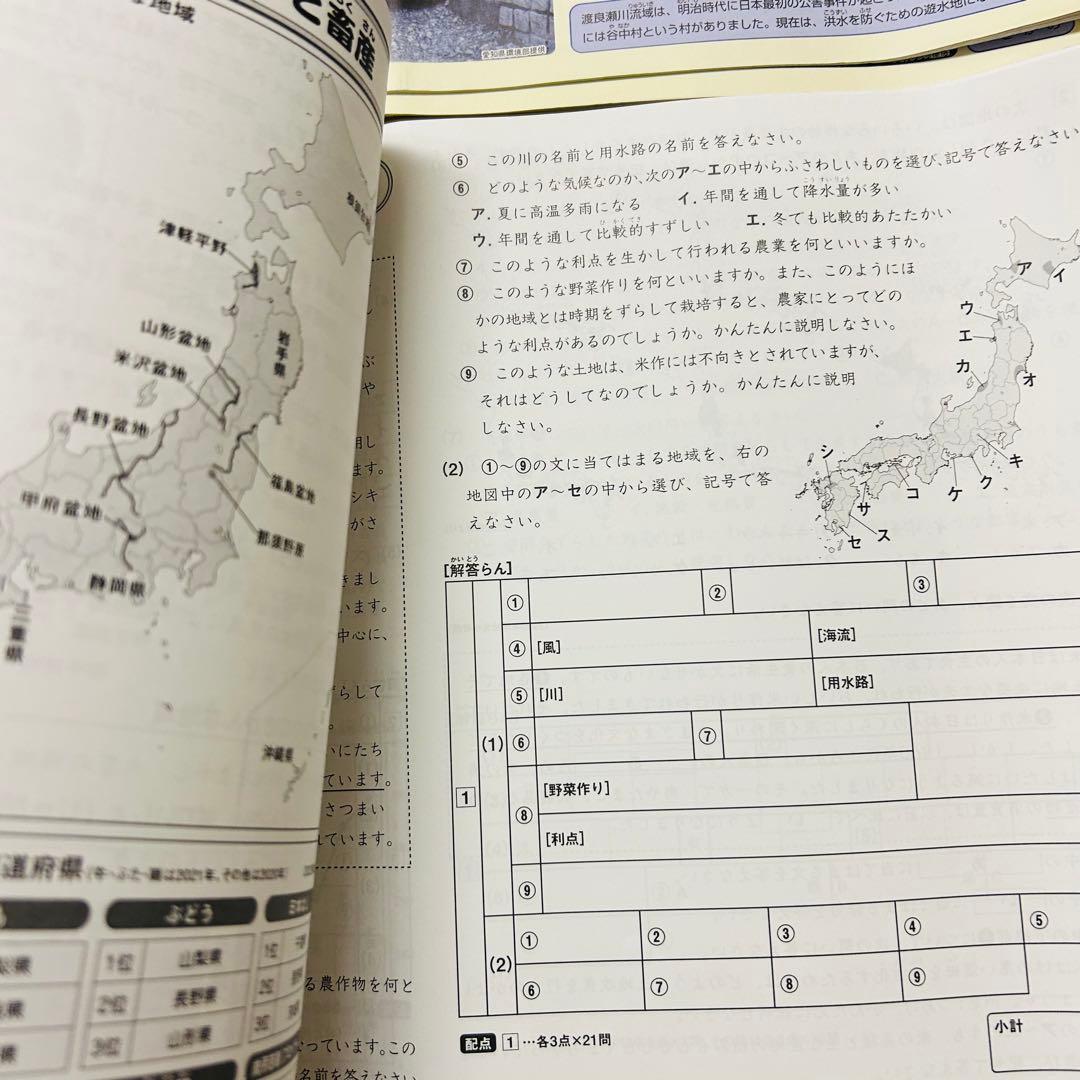 地域
と畜産
津軽平野
山形盆地
米沢盆地
岩手県
長野盆地
福島盆地
甲府盆地
那須野原
静岡県
三重県
沖縄県
道府県
ぶどう
1位 山梨県
2位 長野県
3位 山形県
愛知県環境部提供
には谷中村という村がありました。現在は、洪水を防ぐための遊水地に
⑤ この川の名前と用水路の名前を答えなさい。
⑥ どのような気候なのか、次のア〜エの中からふさわしいものを選び、記号で答えなさい
ア. 夏に高温多雨になる イ. 年間を通して降水量が多い
ウ. 年間を通して比較的すずしい エ. 冬でも比較的あたたかい
⑦ このような利点を生かして行われる農業を何といいますか。
⑧ このような野菜作りを何といいますか。また、このようにほ
かの地域とは時期をずらして栽培すると、農家にとってどの
ような利点があるのでしょうか。かんたんに説明しなさい。
⑨ このような土地は、米作には不向きとされていますが、
それはどうしてなのでしょうか。かんたんに説明
しなさい。
(2) ①〜⑨の文に当てはまる地域を、右の
地図中のア〜セの中から選び、記号で答
えなさい。
ア イ
ウ
エ
カ オ
キ
シ
サ コ ケ ク
セ ス
[解答らん]
1
(1)
① ② ③
④ [風] [海流]
⑤ [川] [用水路]
⑥ ⑦
⑧ [野菜作り]
[利点]
⑨
(2)
① ② ③ ④ ⑤
⑥ ⑦ ⑧ ⑨
配点 1 …各3点×21問
小計
ます。
シキ
きまし
います。
中心に、
ずらして
いにたち
ています。
さつまい
れています。
る農作物を何と
なっています。この
名前を答えなさい